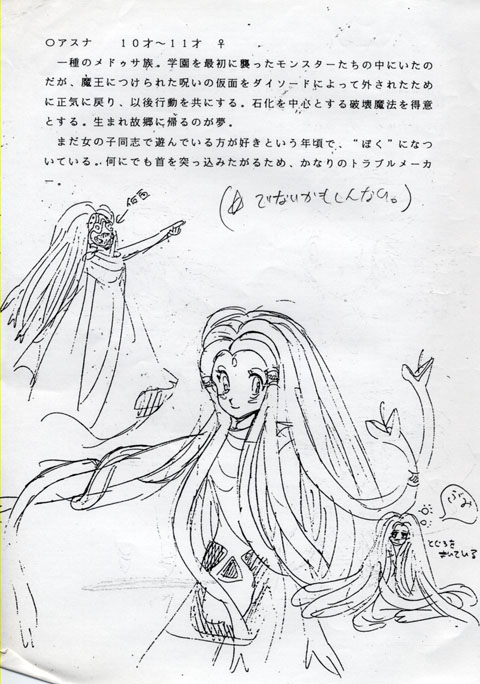 ○アスナ　１０才～１１才　♀
一種のメドゥサ族。学園を最初に襲ったモンスターたちの中にいたの
だが、魔王につけられた呪いの仮面をダイソードによって外されたため
に正気に戻り、以後行動を共にする。石化を中心とする破壊魔法を得意
とする。生まれ故郷に帰るのが夢。
まだ女の子同志で遊んでいる方が好きという年頃で、“ぼく”になつ
いている。何にでも首を突っ込みたがるため、かなりのトラブルメーカ
ー。
でないかもしんない。)
仮面
ぷみ
とぐろを
まいている